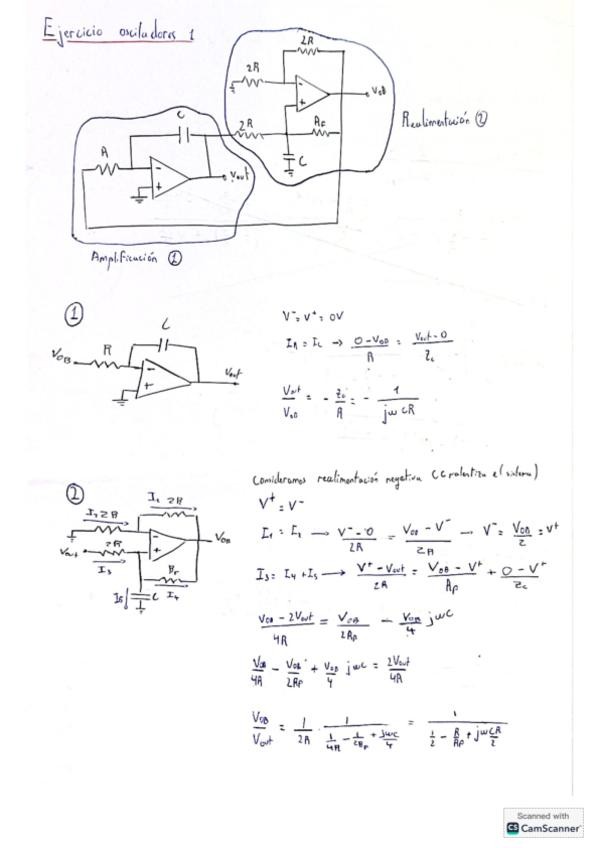 Ejercicio osciladores 1
2R
2R
VOB
2R
RF
C
Realimentación ②
C
R
Vout
Amplificación ①
①
C
R
VOB
Vout
V⁻ = V⁺ = 0V
IR = IC → (0 - VOB)/R = (Vout - 0)/Zc
Vout/VOB = - Zc/R = - 1/(jωCR)
Consideramos realimentación negativa
②
V⁺ = V⁻
I1 2R
I2 2R
VOB
Vout
2R
I3
RF
I4
I5
C
→ (V⁻ - 0)/2R = (VOB - V⁻)/2R → V⁻ = VOB/2 = V⁺
I3 = I4 + I5 → (V⁺ - Vout)/2R = (VOB - V⁺)/RF + (0 - V⁺)/Zc
(VOB - 2Vout)/4R = VOB/2RF -
jωC
VOB/4R - VOB/2RF + VOB/4 jωC = 2Vout/4R
VOB/Vout = 1/2R · 1/(1/4R - 1/2RF + jωC/4) = 1/(1/2 - R/RF + jωCR/2)
Scanned with
CS CamScanner